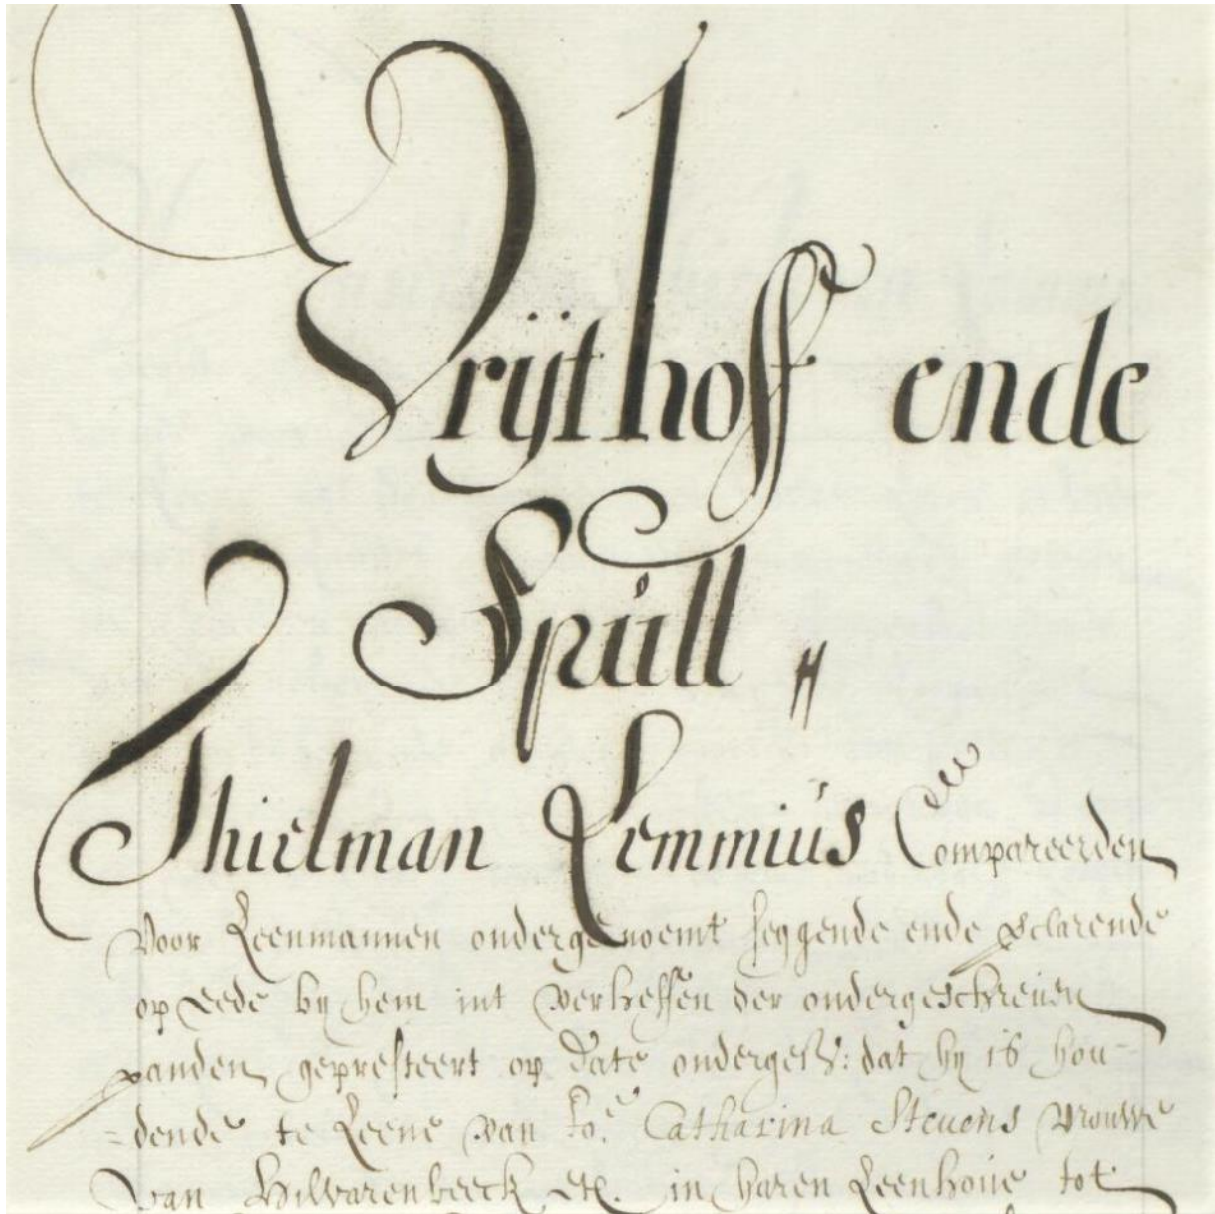 Vrÿthoff ende
Spúll "
Thielman Lemmiús Compareerden
voor Leenmannen ondergenoemt seggende ende
op eede by hem int verheffen der ondergeschreúen
panden gepresteert op date ondergeß: dat hy is hou-
=dende te Leene van Catharina Steuens vrouwe
van Hilvarenbeeck etc. in haren Leenhoúe tot